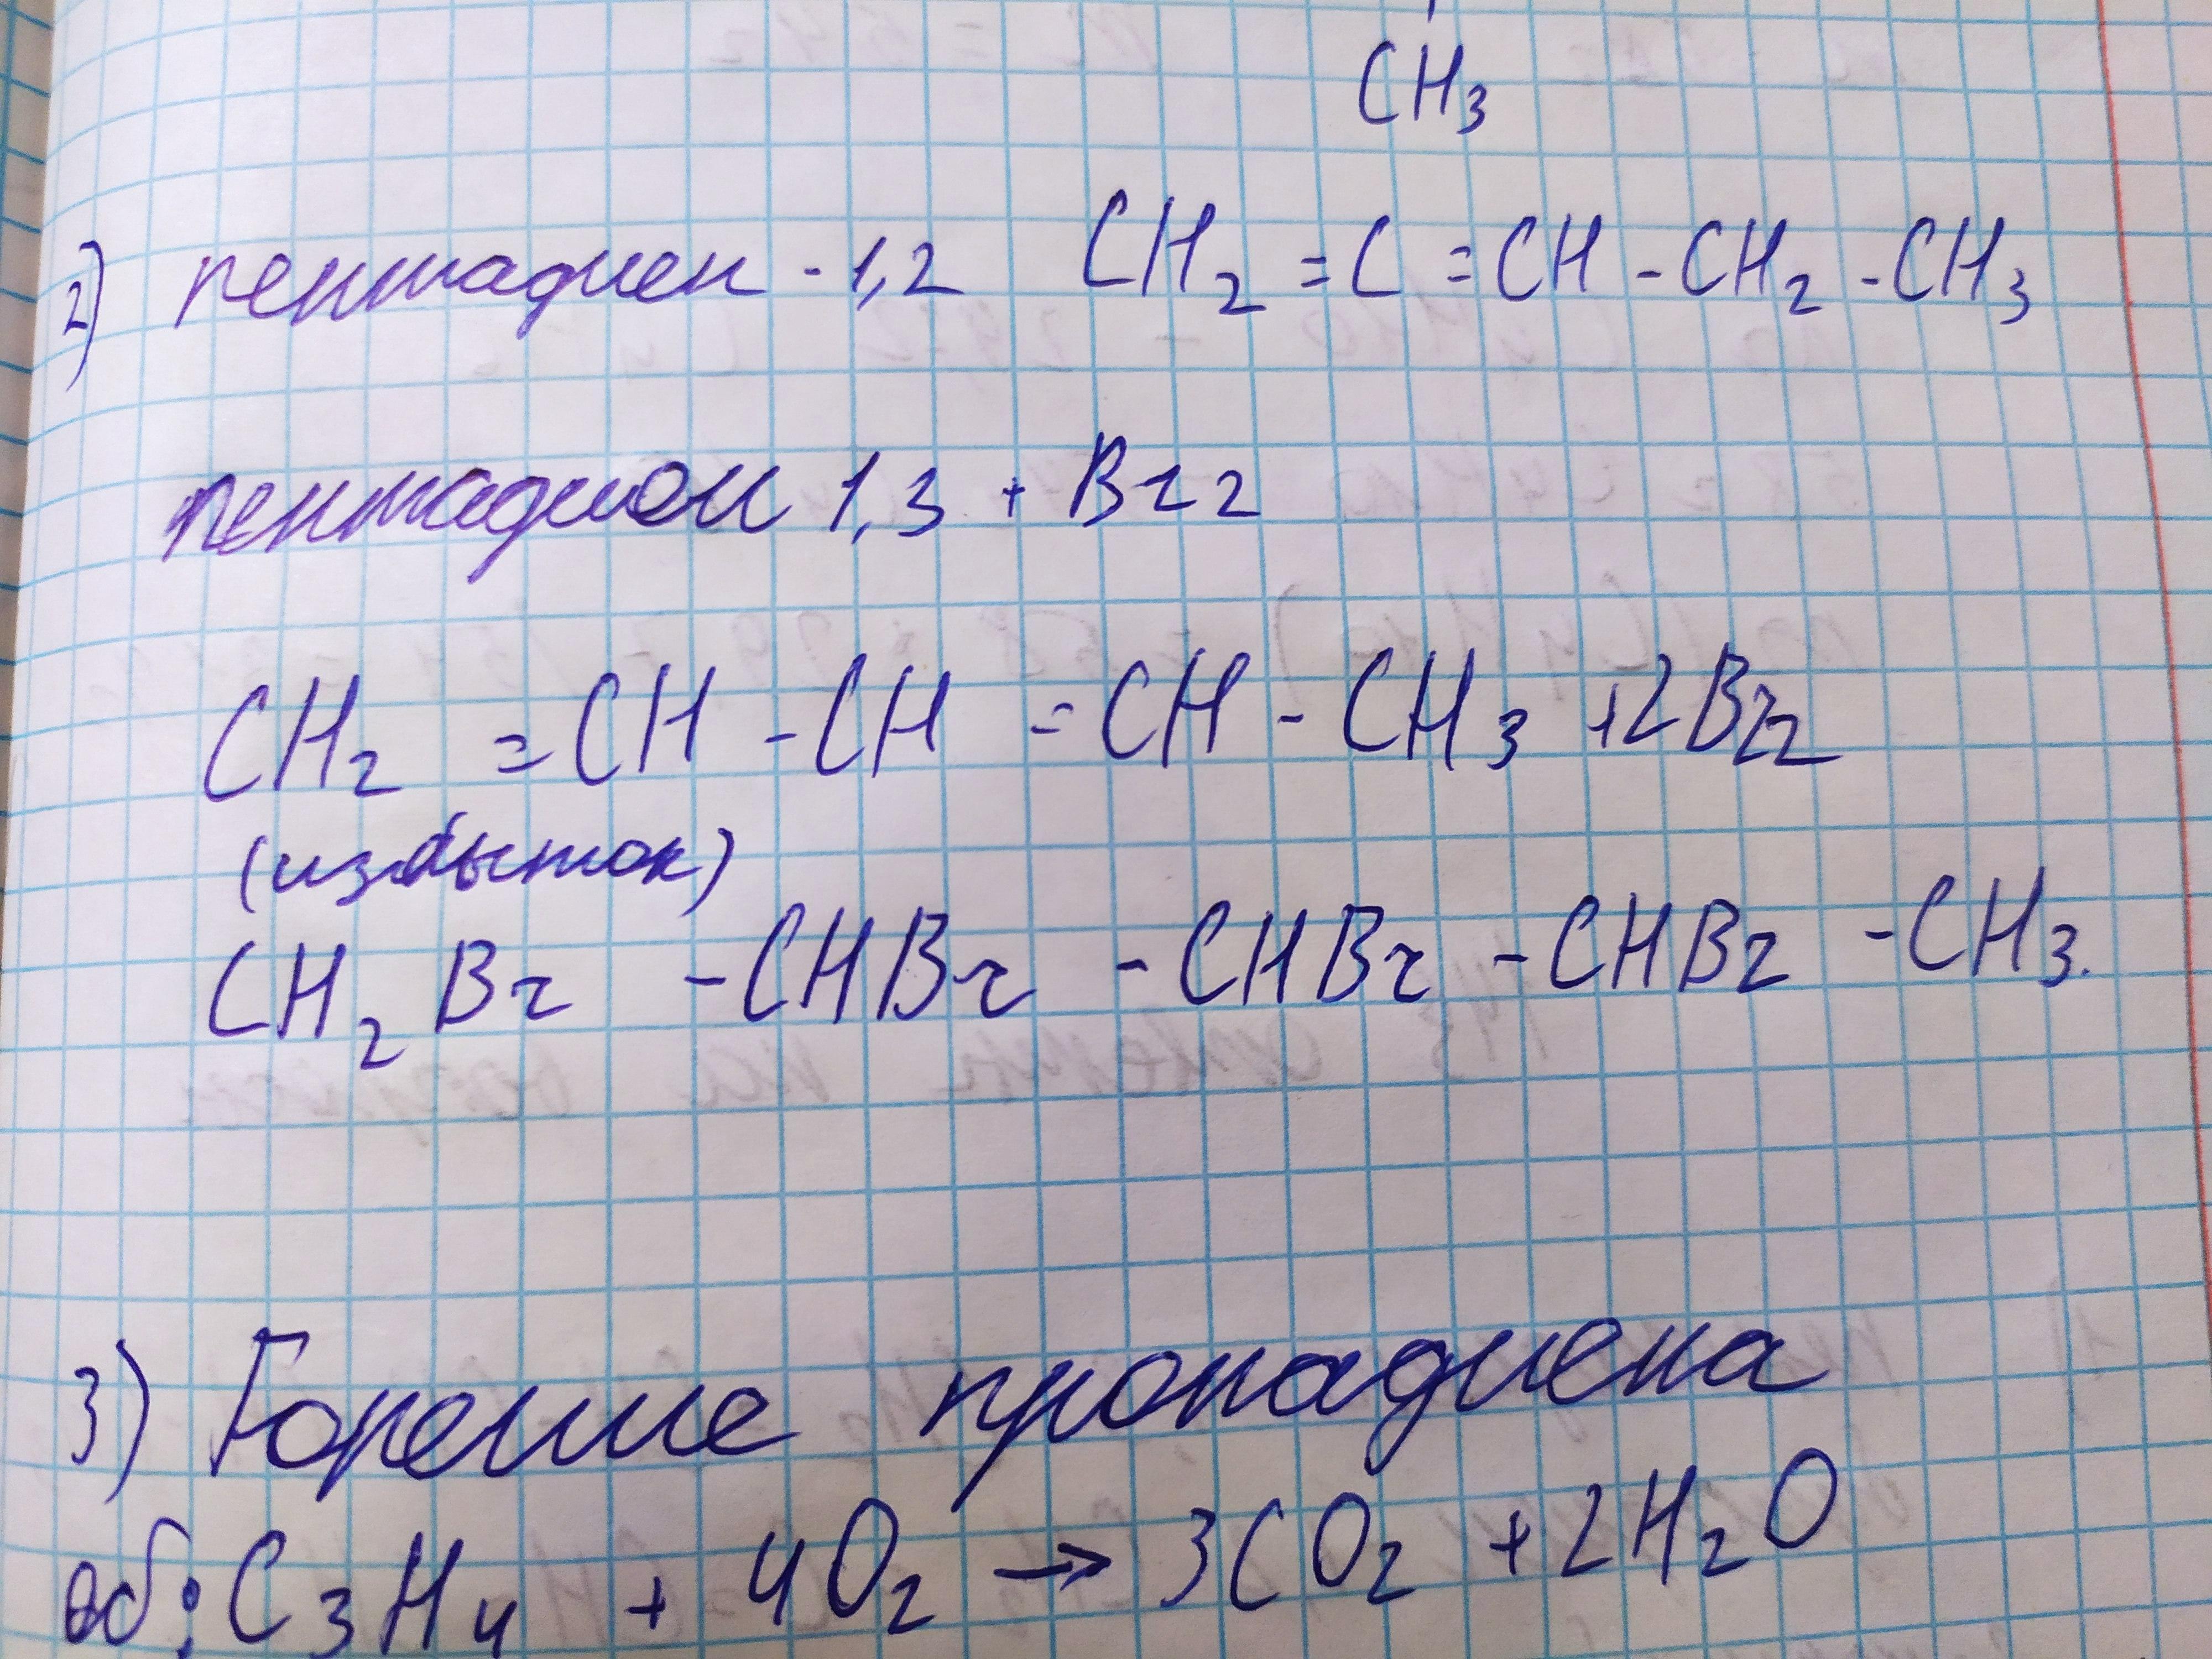 CH₃
2) пентадиен - 1,2 CH₂ = C = CH - CH₂ - CH₃
пентадиен 1,3 + Br₂
CH₂ = CH - CH = CH - CH₃ + 2Br₂
(избыток)
CH₂Br - CHBr - CHBr - CHBr - CH₃.
3) Горение пропадиена
об: C₃H₄ + 4O₂ → 3CO₂ + 2H₂O